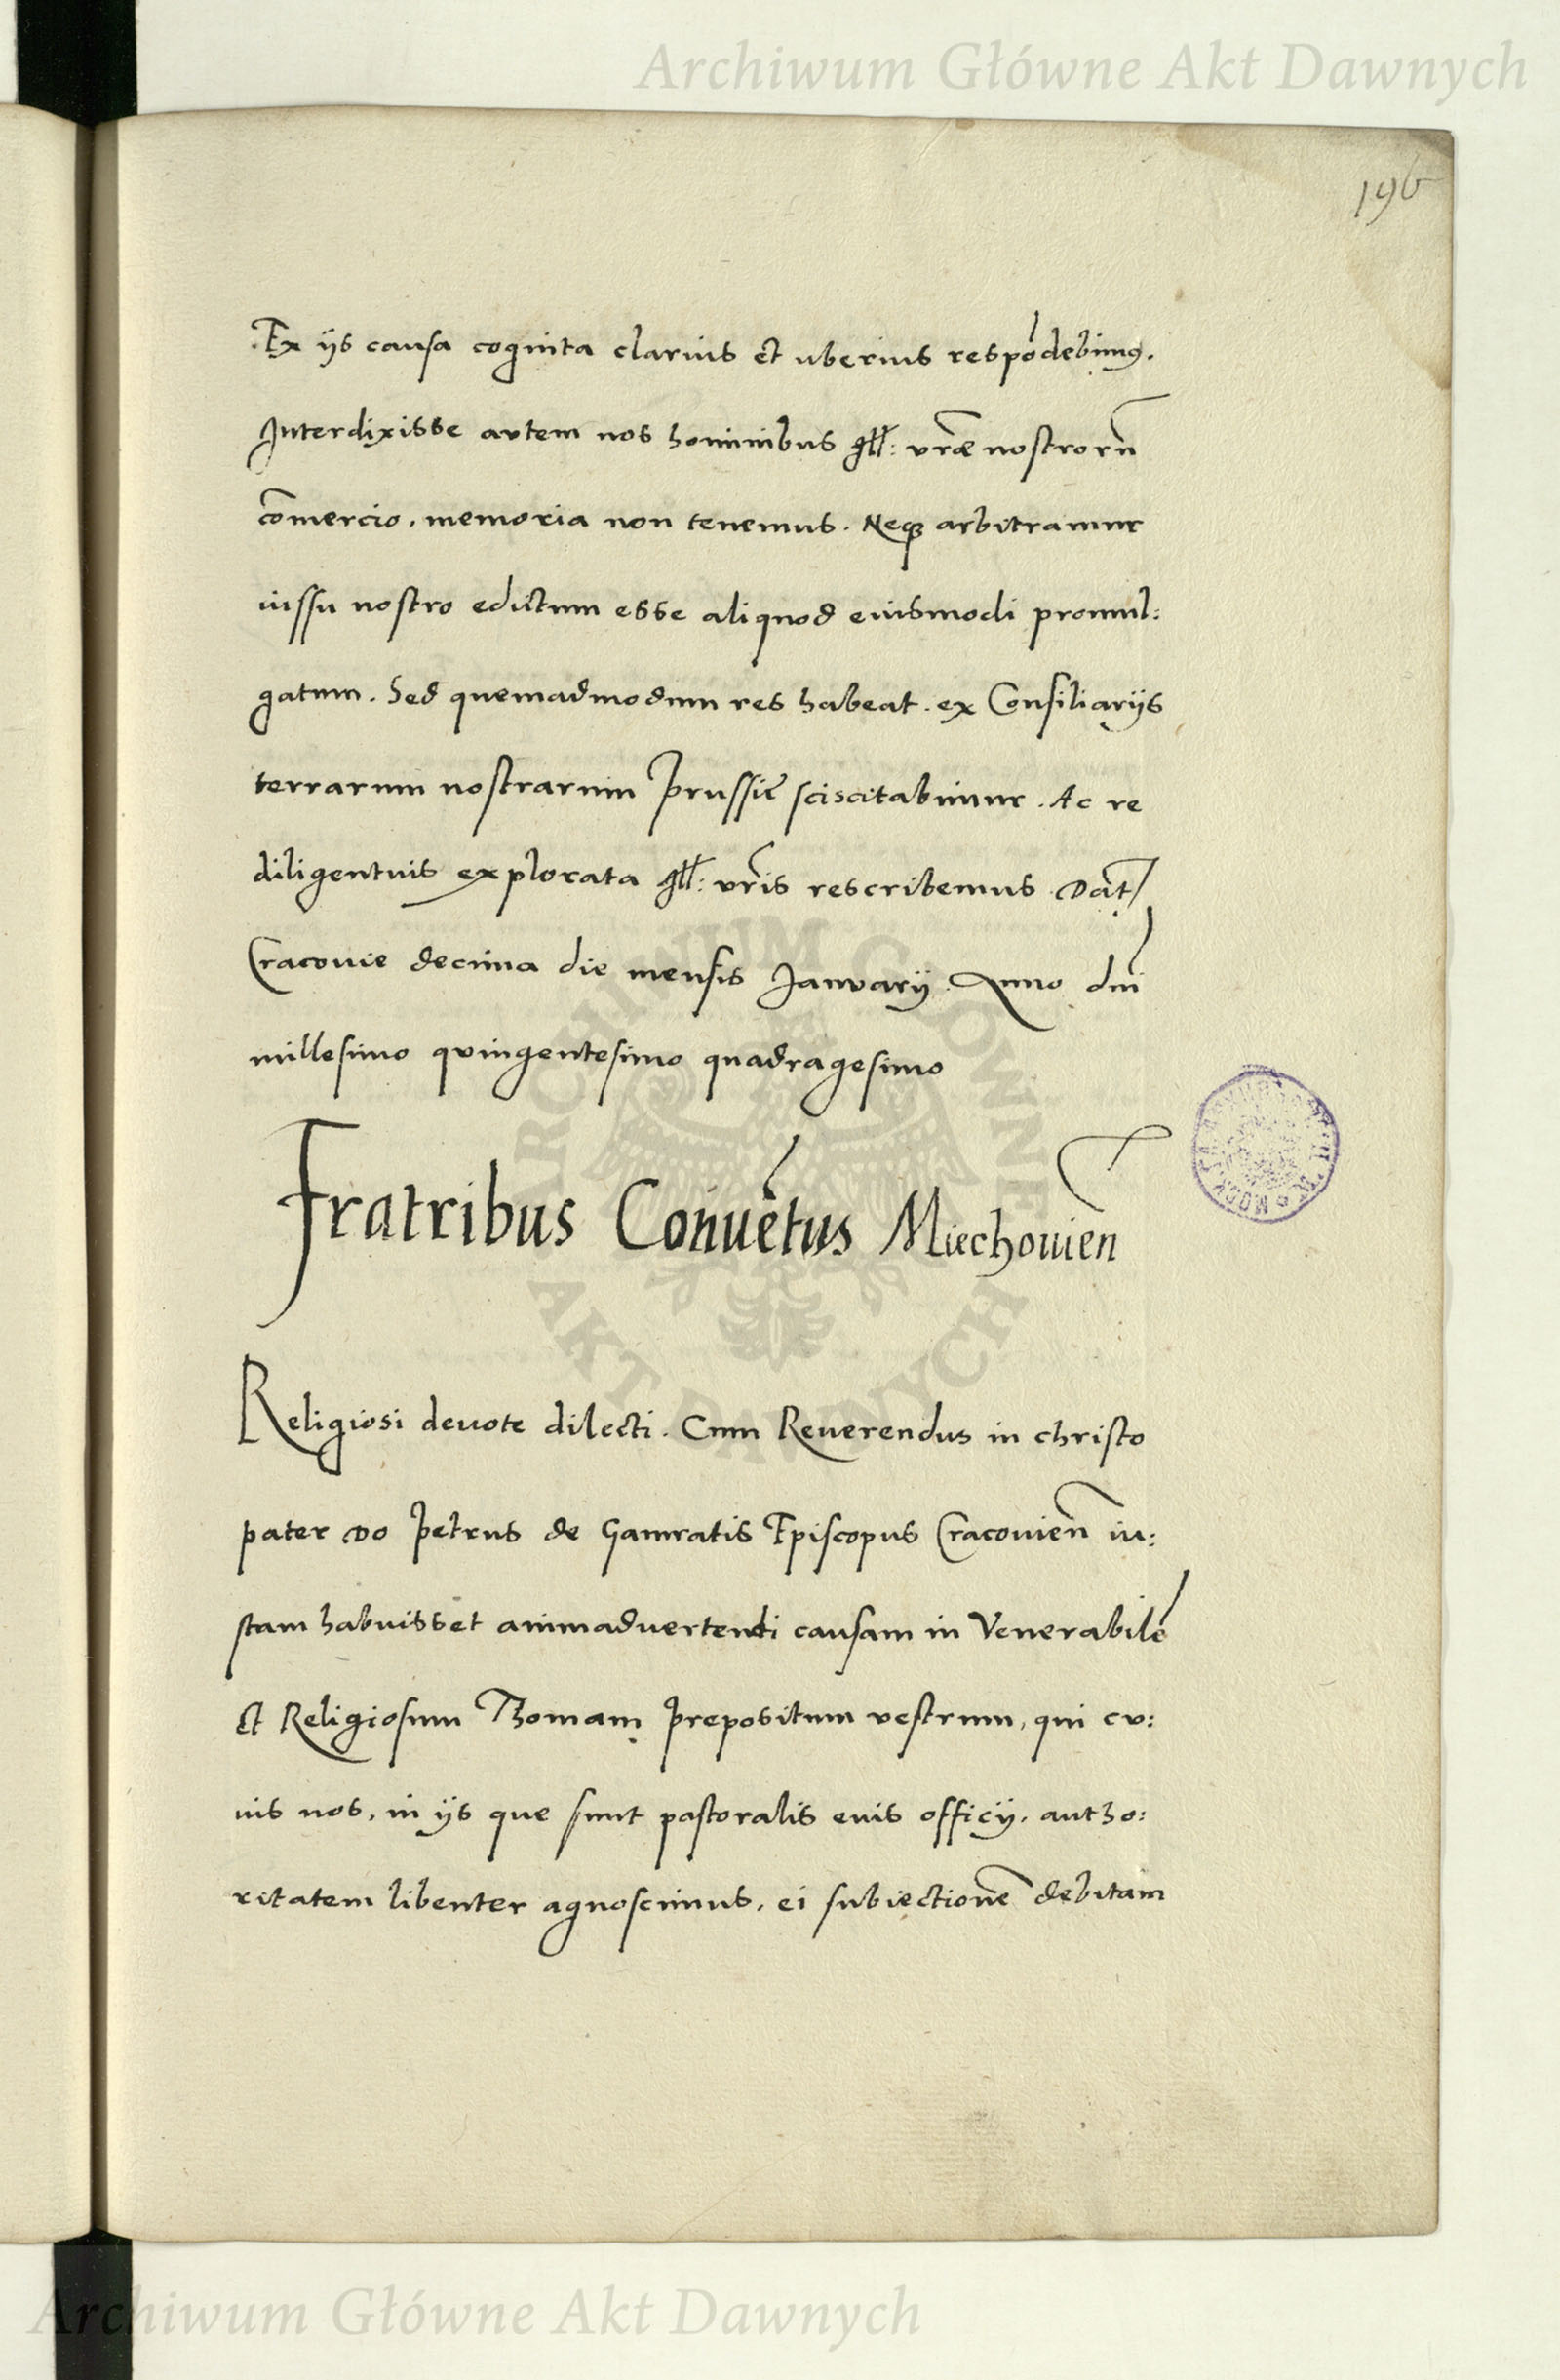 Archiwum Główne Akt Dawnych
196
Ex ijs causa cognita clarius et uberius respōdebimꝰ.
Interdixisse autem nos hominibus Ill: vr̄ae nostrorū
com̄ercio, memoria non tenemus. Neqꝫ arbitramur
iussu nostro edictum esse aliquod eiusmodi promul:
gatum. Sed quemadmodum res habeat. ex Consiliarijs
terrarum nostrarum Prussię sciscitabimur. Ac re
diligentius explorata Ill: vr̄is rescribemus. Dat̄
Cracouie decima die mensis Januarij. Anno dn̄i
millesimo quingentesimo quadragesimo
Fratribus Conuētus Miechouien̄
Religiosi deuote dilecti. Cum Reuerendus in christo
pater Do Petrus de Gamratis Episcopus Cracouien̄ iu:
stam habuisset animaduertendi causam in Venerabilē
et Religiosum Thomam Prepositum vestrum, qui cu:
ius nos, in ijs que sunt pastoralis eius officij, autho:
ritatem libenter agnoscimus, ei subiectionē debitam
ARCHIWUM GŁÓWNE AKT DAWNYCH
Archiwum Główne Akt Dawnych